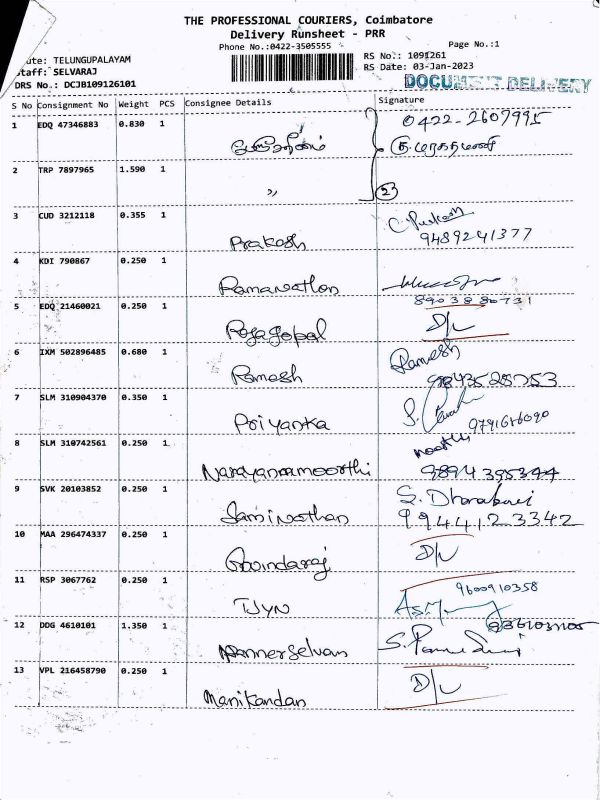 THE PROFESSIONAL COURIERS, Coimbatore
Delivery Runsheet - PRR
Phone No.:0422-3505555
Page No.:1
RS No.: 1091261
RS Date: 03-Jan-2023
ute: TELUNGUPALAYAM
taff: SELVARAJ
DRS No.: DCJB109126101
DOCUMENT DELIVERY
S No Consignment No Weight PCS Consignee Details Signature
1 EDQ 47346883 0.830 1 0422-2607995
2 TRP 7897965 1.590 1 ,, 2
3 CUD 3212118 0.355 1 Prakash 9489241377
4 KDI 790867 0.250 1 Ramanathan
8903880731
5 EDQ 21460021 0.250 1 Rajagopal D/L
6 IXM 502896485 0.680 1 Ramesh Ramesh
7 SLM 310904370 0.350 1 Priyanka
8 SLM 310742561 0.250 1 Narayanamoorthi 9894395344
9 SVK 20103852 0.250 1 Saminathan
9944123342
10 MAA 296474337 0.250 1 Govindaraj D/L
11 RSP 3067762 0.250 1 TJYN 9600910358
12 DDG 4610101 1.350 1 Pannerselvam
13 VPL 216458790 0.250 1 Manikandan D/L